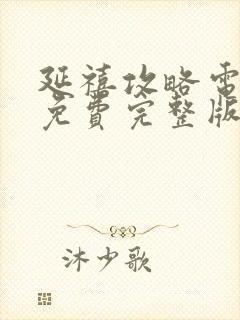 延禧攻略電
免費完整版
沐少歌